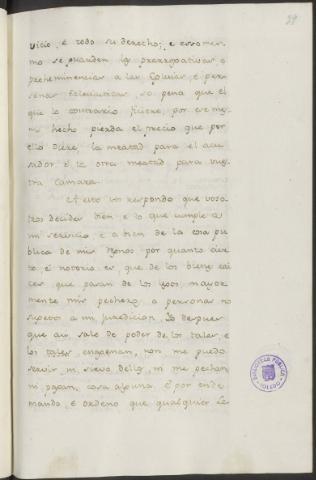 29
vicio, é todo su derecho; é eso mes-
mo se guarden las prerrogativas é
preheminencias a las Iglesias é per-
sonas Eclesiasticas, so pena que él
que lo contrario ficiere, por ese mes-
mo hecho pierda el precio que por
ello diere, la meatad para el acu-
sador é la otra meatad para vues-
tra Camara.
A esto vos respondo que voso-
tros decides bien, é lo que cumple a
mi servicio, é a bien de la cosa pu-
blica de mis Rgnos por quanto cier-
to é notorio es, que de los bienes rai-
ces que pasan de los legos, mayor-
mente mis pecheros a personas no
sujetos a mi juredicion, é despues
que asi sale de poder de los tales, é
los tales enagenan, non me puedo
servir, ni sirvo dellos, ni me pechan,
ni pagan, cosa alguna. E por ende
mando, é ordeno que qualquier le-
BIBLIOTECA PUBLICA
TOLEDO